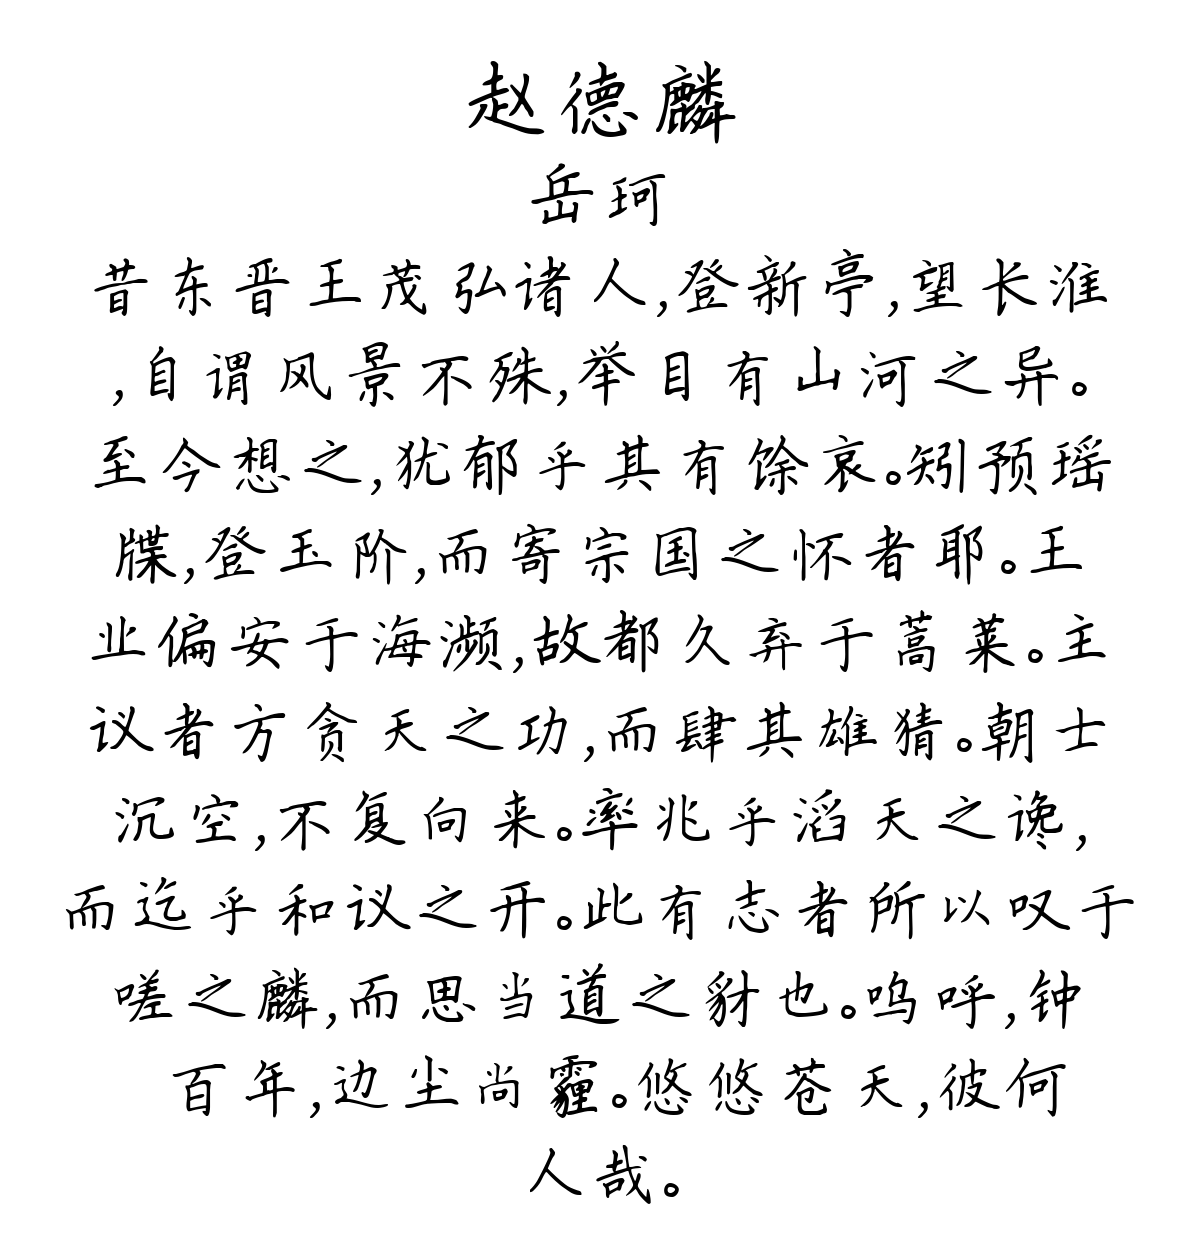 赵德麟
岳珂
昔东晋王茂弘诸人,登新亭,望长淮
,自谓风景不殊,举目有山河之异。
至今想之,犹郁乎其有馀哀。矧预瑶
牒,登玉阶,而寄宗国之怀者耶。王
业偏安于海濒,故都久弃于蒿莱。主
议者方贪天之功,而肆其雄猜。朝士
沉空,不复向来。率兆乎滔天之谗,
而迄乎和议之开。此有志者所以叹于
嗟之麟,而思当道之豺也。呜呼,钟
百年,边尘尚霾。悠悠苍天,彼何
人哉。